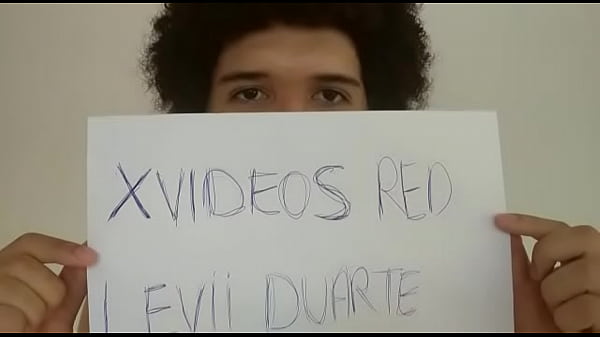 XVIDEOS RED
LEVII DUARTE